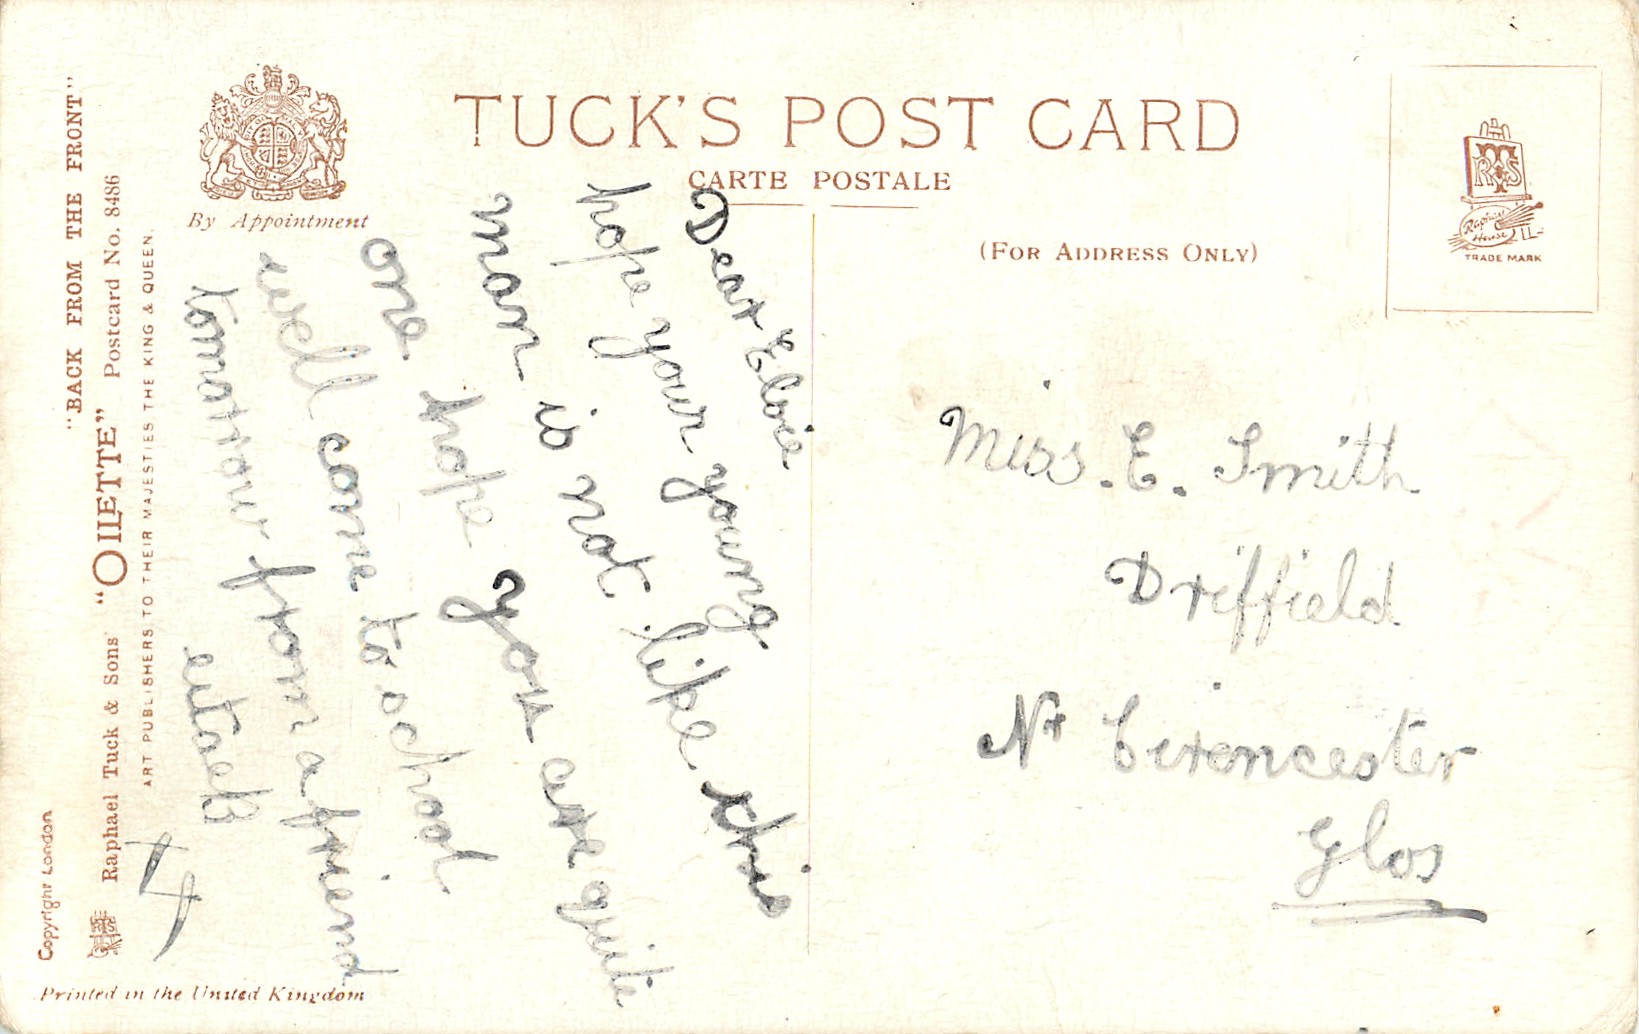 "BACK FROM THE FRONT"
Raphael Tuck & Sons' "OILETTE" Postcard No. 8486
ART PUBLISHERS TO THEIR MAJESTIES THE KING & QUEEN.
Copyright London
By Appointment
TUCK'S POST CARD
CARTE POSTALE
(FOR ADDRESS ONLY)
RTS
Raphael House
TRADE MARK
Dear Elsie
hope your young
man is not like this
one hope you are quite
well come to school
tomorrow from a friend
Miss. E. Smith
Driffield
Nr Cirencester
Glos
Printed in the United Kingdom